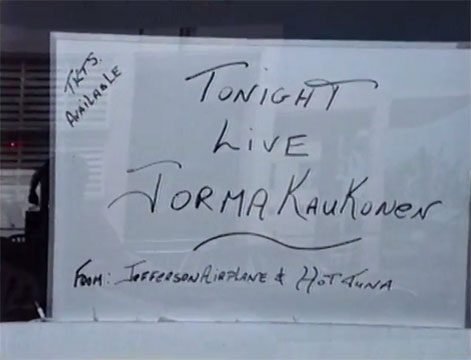 TKTS.
AVAILABLE
TONIGHT
LIVE
JORMA KAUKONEN
FROM: JEFFERSON AIRPLANE & HOT TUNA